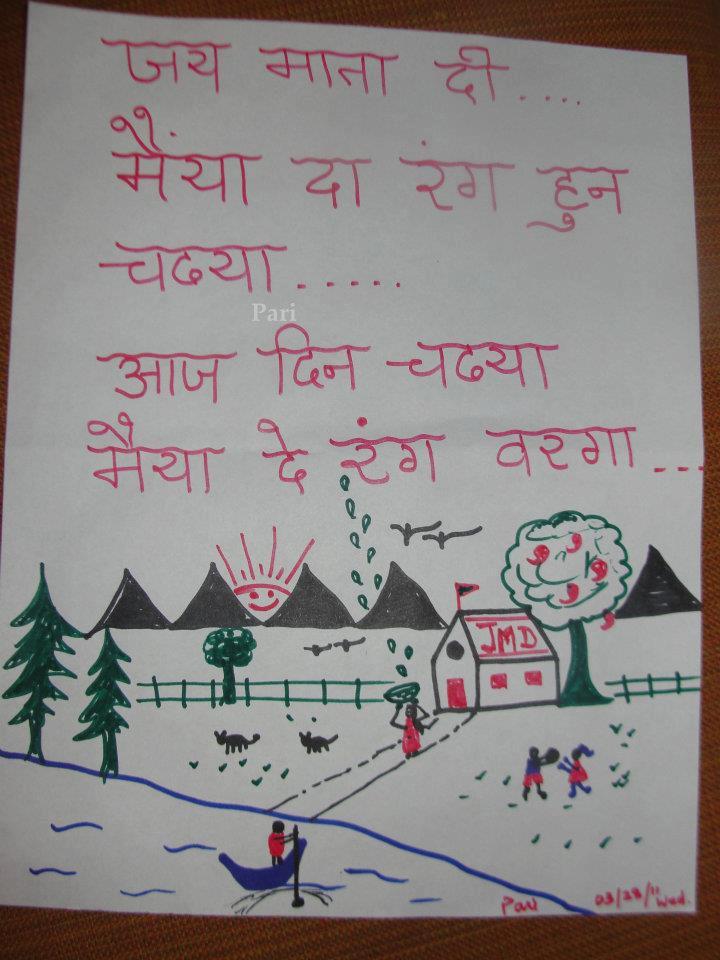 जय माता दी....
मैंया दा रंग हुन
चढया.....
Pari
आज दिन चढया
मैया दे रंग वरगा...
JMD
Pari
Wed.